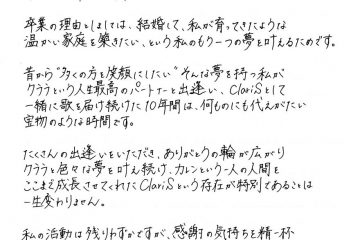 卒業の理由としましては、結婚して、私が育ってきたような
温かい家庭を築きたい、という私のもう一つの夢を叶えるためです。
昔から"多くの方を笑顔にしたい"そんな夢を持つ私が
クララという人生最高のパートナーと出逢い、ClariSとして
一緒に歌を届け続けた10年間は、何ものにも代えがたい
宝物のような時間です。
たくさんの出逢いをいただき、ありがとうの輪が広がり
クララと色々な夢を叶え続け、カレンという一人の人間を
ここまで成長させてくれたClariSという存在が特別であることは
一生変わりません。
私の活動は残りわずかですが、感謝の気持ちを精一杯